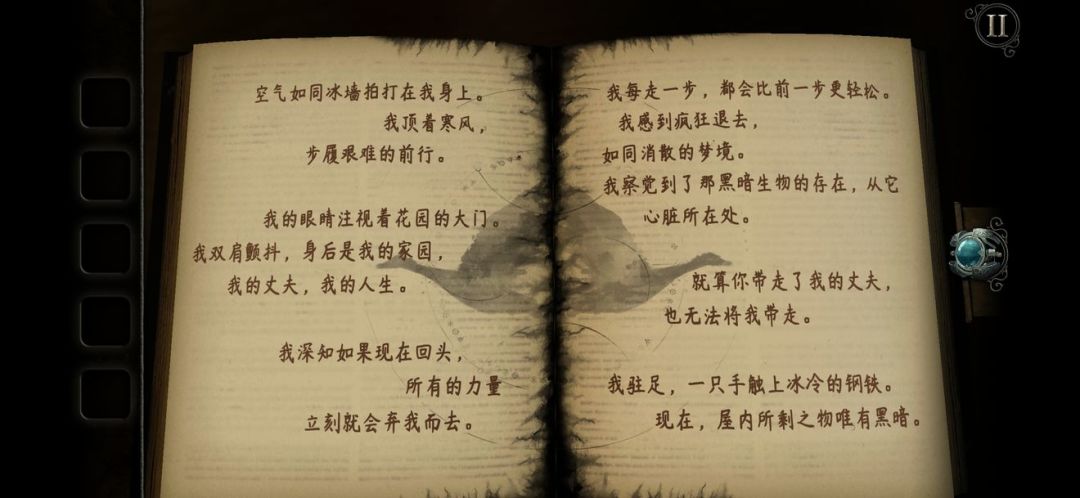 空气如同冰墙拍打在我身上。
我顶着寒风，
步履艰难的前行。
我的眼睛注视着花园的大门。
我双肩颤抖，身后是我的家园，
我的丈夫，我的人生。
我深知如果现在回头，
所有的力量
立刻就会弃我而去。
我每走一步，都会比前一步更轻松。
我感到疯狂退去，
如同消散的梦境。
我察觉到了那黑暗生物的存在，从它
心脏所在处。
就算你带走了我的丈夫，
也无法将我带走。
我驻足，一只手触上冰冷的钢铁。
现在，屋内所剩之物唯有黑暗。